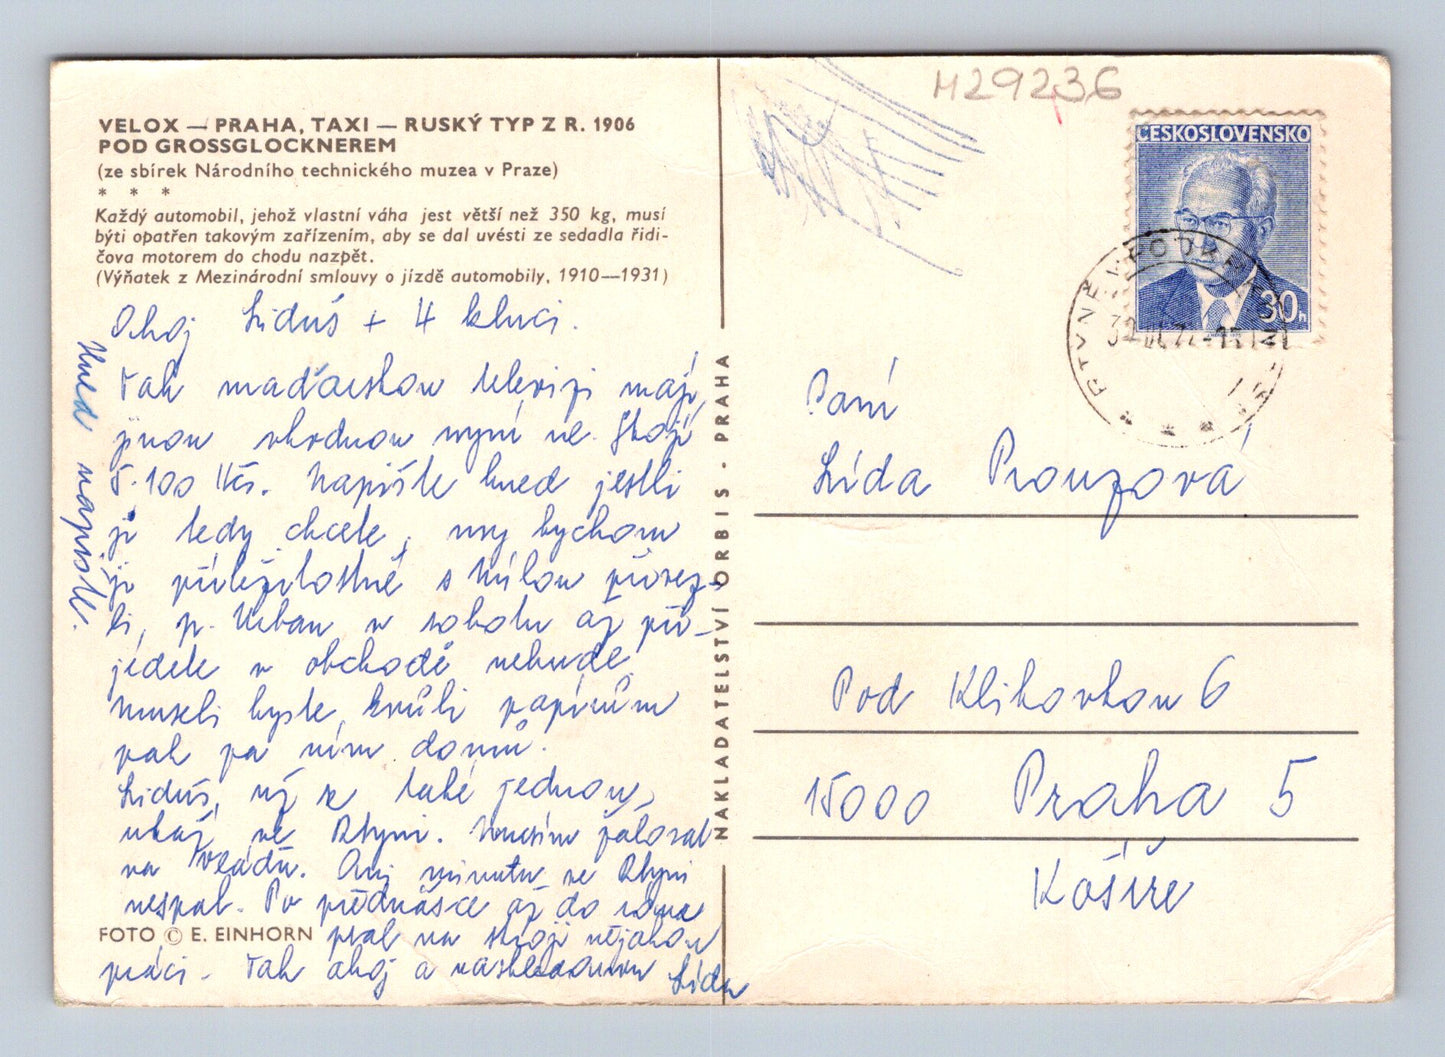 VELOX — PRAHA, TAXI — RUSKÝ TYP Z R. 1906
POD GROSSGLOCKNEREM
(ze sbírek Národního technického muzea v Praze)
* * *
Každý automobil, jehož vlastní váha jest větší než 350 kg, musí
býti opatřen takovým zařízením, aby se dal uvésti ze sedadla řidi-
čova motorem do chodu nazpět.
(Výňatek z Mezinárodní smlouvy o jízdě automobily, 1910—1931)
Ahoj Liduš + 4 kluci.
Tak maďarskou televizi mají,
jinou vhodnou nyní ne. Stojí
5.100 Kčs. Napište hned jestli
ji tedy chcete, my bychom
ji příležitostně s Mílou přivez-
li, p. Urban v sobotu až při-
jedete v obchodě nebude,
museli byste kvůli papírům
pak za ním domů.
Liduš, též se také jednou,
ukaž ve. Musím žalovat
na Vládu. Ani minutu ve
nespal. Po přednášce až do rána
psal na stroji nějakou
práci. Tak ahoj a Lída
Hned napište.
FOTO © E. EINHORN
NAKLADATELSTVÍ ORBIS - PRAHA
H29236
ČESKOSLOVENSKO
30h
Paní
Lída Prouzová
Pod Klikovkou 6
15000 Praha 5
Košíře